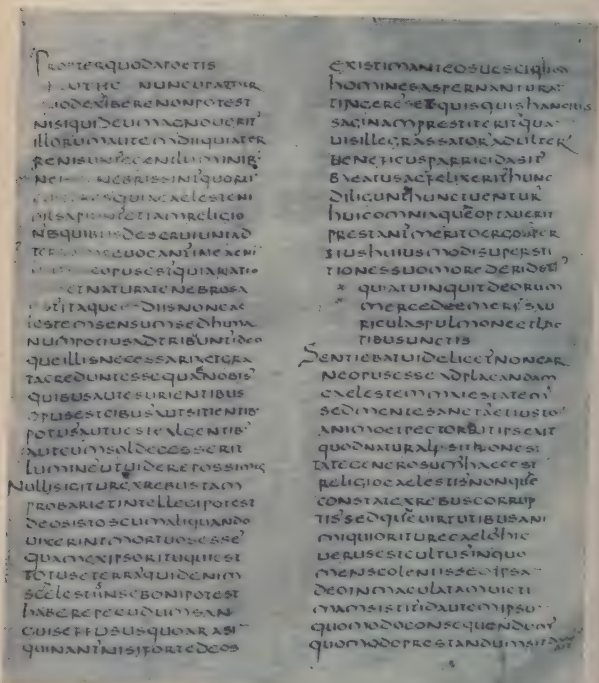 PROPTERQUODAPOETIS
NUNCUPANTUR
QUODEXIBERENONPOTEST
NISIQUIDEUMAGNOUERIT
ILLORUMAUTEMDIIQUIATER
RENISUNTEGENTLUMINIB·
NEBRISSINTQUORU
QUIACAELESTENI
HILSAPIUNTETIAMRELIGIO
NESQUIBUSDESERUIUNTAD
REUOCANT
OPUSESTQUIARATIO
ETNATURATENEBROSA
ESTITAQUE DIISNONCAE
LESTEMSENSUMSEDHUMA
NUMPOTIUSADTRIBUNTIDEO
QUEILLISNECESSARIAETGRA
TACREDUNTESSEQUANOBIS
QUIBUSAUTESURIENTIBUS
OPUSESTCIBUSAUTSITIENTIB·
POTUSAUTUESTEALGENTIB·
AUTCUMSOLDECESSERIT
LUMINEUTUIDEREPOSSIMUS
NULLISIGITUREXREBUSTAM
PROBARIETINTELLEGIPOTEST
DEOSISTOSCUMALIQUANDO
UIXERINTMORTUOSESSE
QUAMEXIPSORITUQUIEST
TOTUSETERRAQUIDENIM
SCELESTIINSEBONIPOTEST
HABEREPECUDUMSAN
GUISEFFUSUSQUOARASI
QUINANTNISIFORTEDEOS
EXISTIMANTEOSUESCIQUOD
HOMINESASPERNANTURAT
TINGERESETQUISQUISHANCIIS
SAGINAMPRESTITERITQUA
UISILLEGRASSATORADULTER
BENEFICUSPARRICIDASIT
BEATUSACFELIXERITHUNC
DILIGUNTHUNCTUENTUR
HUICOMNIAQUEOPTAUERIT
PRESTANTMERITOERGOPER
SIUSHUIUSMODISUPERSTI
TIONESSUOMOREDERIDET
QUIATUINQUITDEORUM
MERCEDEEMERISAU
RICULASPULMONEETLAC
TIBUSUNCTIS
SENTIEBATUIDELICETNONCAR
NEOPUSESSEADPLACANDAM
CAELESTEMMAIESTATEM
SEDMENTESANCTAETIUSTO
ANIMOETPECTOREUTIPSEAIT
QUODNATURALISITHONES
TATEGENEROSUMHAECEST
RELIGIOCAELESTISNONQUE
CONSTATEXREBUSCORRUP
TISSEDQUEUIRTUTIBUSANI
MIQUIORITURECAELOHIC
UERUSESTCULTUSINQUO
MENSCOLENTISSEIPSA
DEOINMACULATAMUICTI
MAMSISTITIDAUTEMIPSU
QUOMODOCONSEQUENDUM
QUOMODOPRESTANDUMSIT